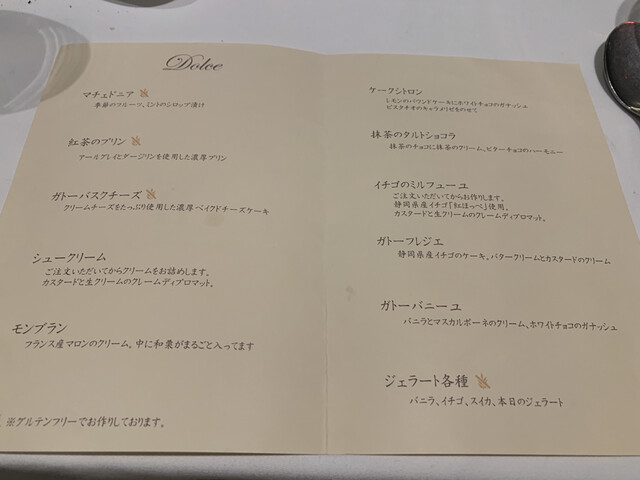 Dolce
マチェドニア
季節のフルーツ、ミントのシロップ漬け
紅茶のプリン
アールグレイとダージリンを使用した濃厚プリン
ガトーバスクチーズ
クリームチーズをたっぷり使用した濃厚ベイクドチーズケーキ
シュークリーム
ご注文いただいてからクリームをお詰めします。
カスタードと生クリームのクレームディプロマット。
モンブラン
フランス産マロンのクリーム。中に和栗がまるごと入ってます
※グルテンフリーでお作りしております。
ケークシトロン
レモンのパウンドケーキにホワイトチョコのガナッシュ
ピスタチオのキャラメリゼをのせて
抹茶のタルトショコラ
抹茶のチョコに抹茶のクリーム、ビターチョコのハーモニー
イチゴのミルフューユ
ご注文いただいてからお作りします。
静岡県産イチゴ「紅ほっぺ」使用。
カスタードと生クリームのクレームディプロマット。
ガトーフレジエ
静岡県産イチゴのケーキ、バタークリームとカスタードのクリーム
ガトーバニーユ
バニラとマスカルポーネのクリーム、ホワイトチョコのガナッシュ
ジェラート各種
バニラ、イチゴ、スイカ、本日のジェラート